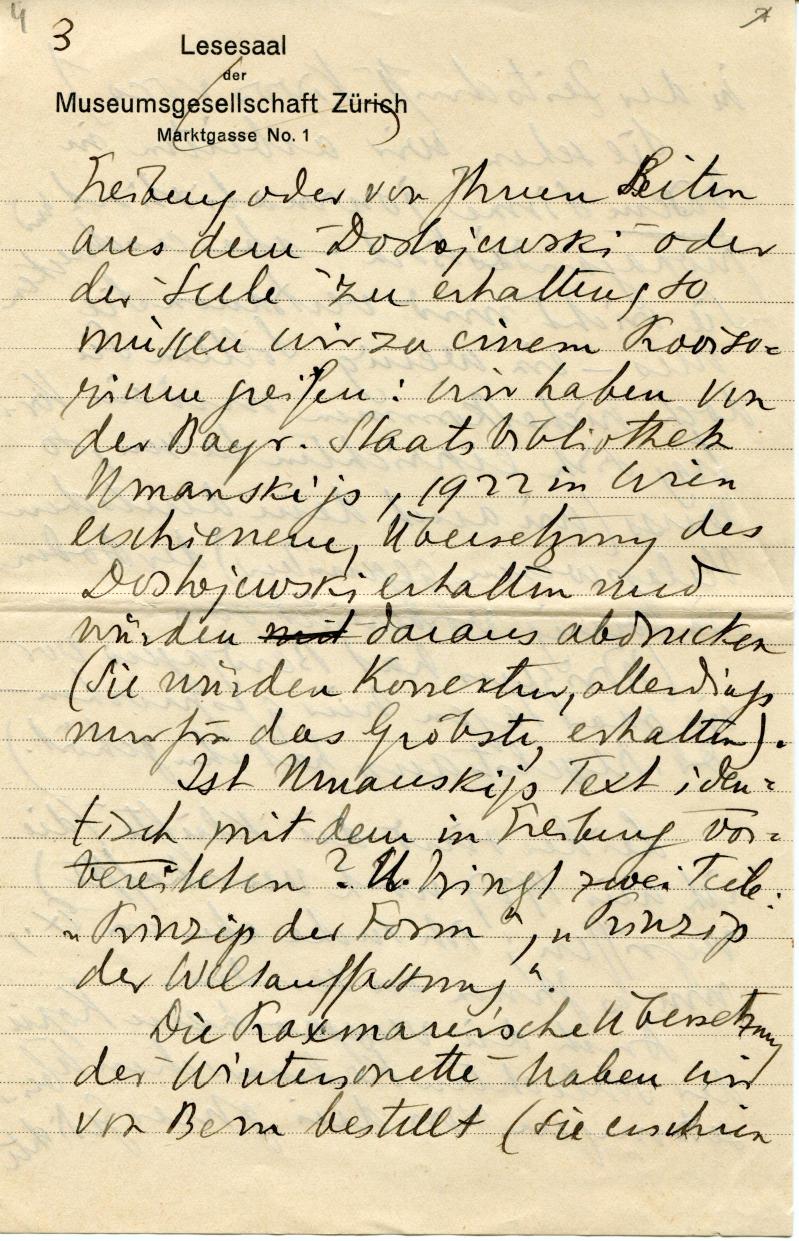 4
3
Lesesaal
der
Museumsgesellschaft Zürich
Marktgasse No. 1
Freiburg oder von Ihnen Seiten
aus dem "Dostojewski" oder
der "Seele" zu erhalten, so
müssen wir zu einem Proviso-
rium greifen: wir haben von
der Bayr. Staatsbibliothek
Umanskijs, 1922 in Wien
erschienene, Übersetzung des
Dostojewski erhalten und
würden mit daraus abdrucken
(Sie würden Korrektur, allerdings
nur für das Gröbste, erhalten).
Ist Umanskijs Text iden-
tisch mit dem in Freiburg vor-
bereiteten? U. bringt zwei Teile:
„Prinzip der Form", „Prinzip
der Weltauffassung".
Die Übersetzung
der "Wintersonette" haben wir
von Bern bestellt (sie erschien